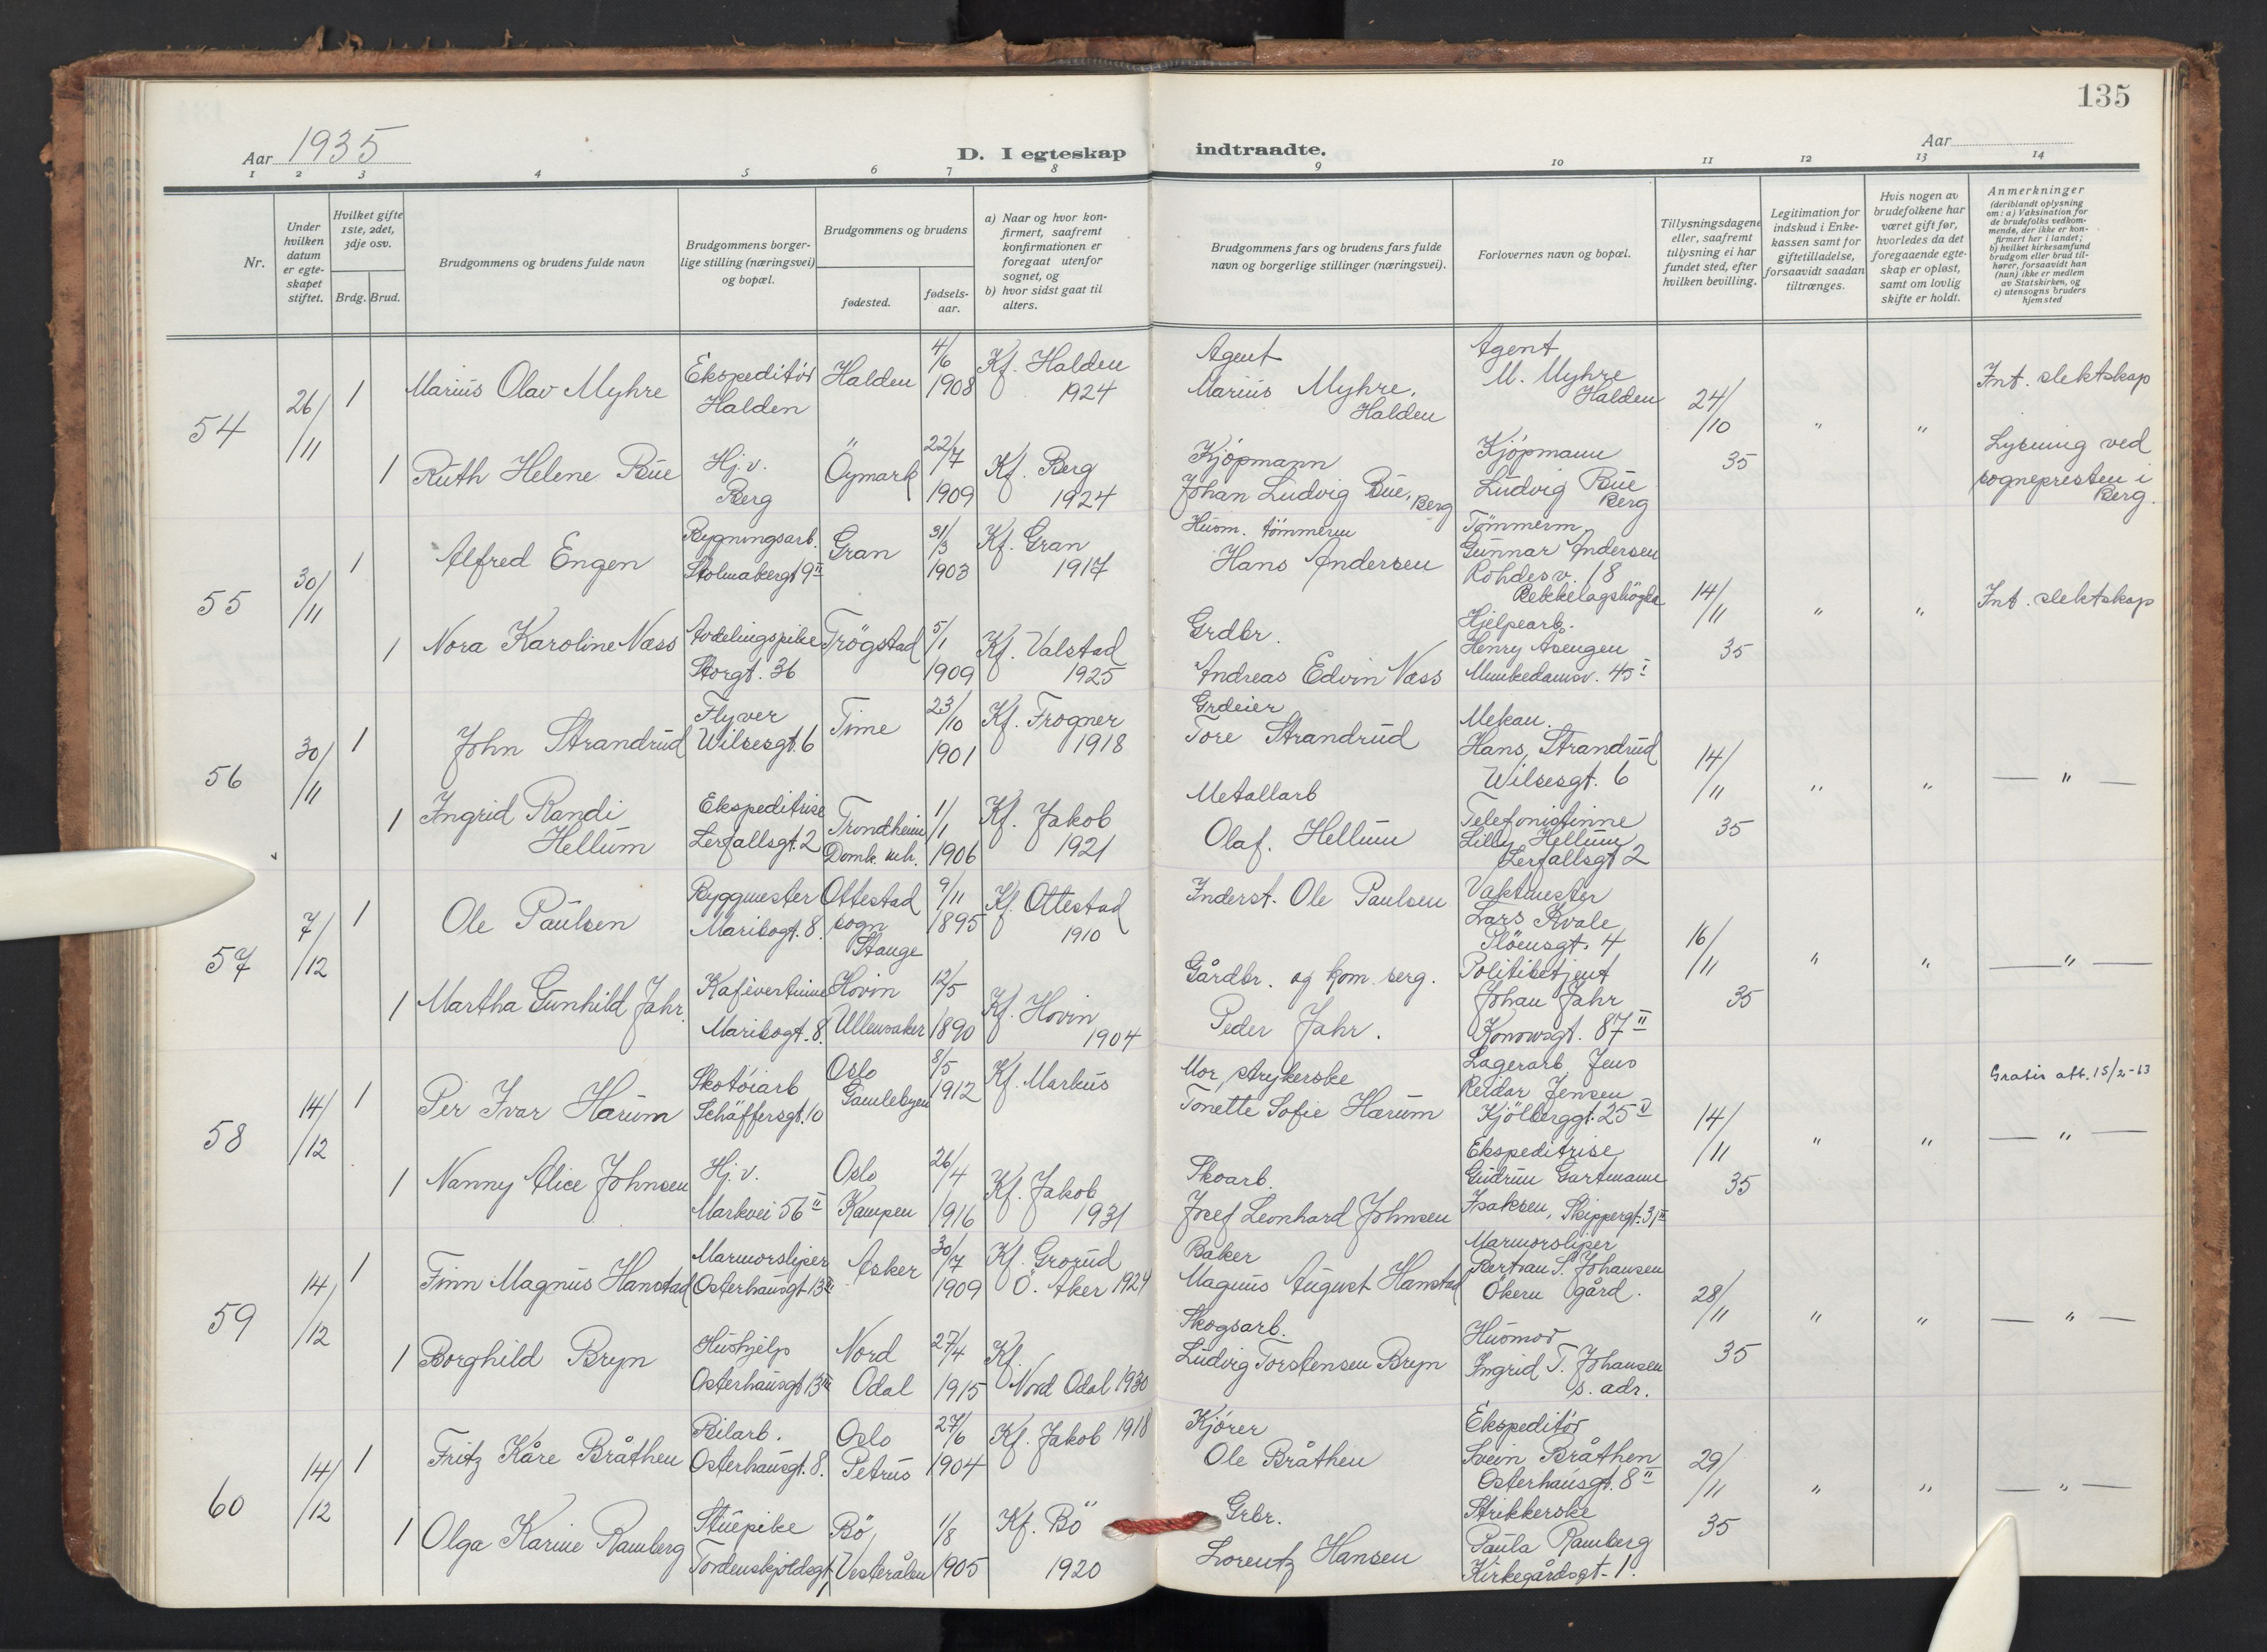 135
Aar 1935
D. I egteskap indtraadte.
Aar
1 2 3 4 5 6 7 8 9 10 11 12 13 14
Nr.
Under hvilken datum er egteskapet stiftet.
Hvilket gifte 1ste, 2det, 3dje osv.
Brdg. Brud.
Brudgommens og brudens fulde navn
Brudgommens borgerlige stilling (næringsvei) og bopæl.
Brudgommens og brudens
fødested.
fødselsaar.
a) Naar og hvor konfirmert, saafremt konfirmationen er foregaat utenfor sognet, og
b) hvor sidst gaat til alters.
Brudgommens fars og brudens fars fulde navn og borgerlige stillinger (næringsvei).
Forlovernes navn og bopæl.
Tillysningsdagene eller, saafremt tillysning ei har fundet sted, efter hvilken bevilling.
Legitimation for indskud i Enkekassen samt for giftetilladelse, forsaavidt saadan tiltrænges.
Hvis nogen av brudefolkene har været gift før, hvorledes da det foregaaende egteskap er opløst, samt om lovlig skifte er holdt.
Anmerkninger
(deriblandt oplysning om: a) Vaksination for de brudefolks vedkommende, der ikke er konfirmert her i landet; b) hvilket kirkesamfund brudgom eller brud tilhører, forsaavidt han (hun) ikke er medlem av Statskirken, og c) utensogns bruders hjemsted
54
26/11
1
Marius Olav Myhre
Ekspeditör
Halden
Halden
4/6
1908
Kf. Halden
1924
Agent
Marius Myhre,
Halden
Agent
M. Myhre
Halden
24/10
35
"
"
Int. slektskap
1
Ruth Helene Bue
Hj.v.
Berg
Öymark
22/7
1909
Kf. Berg
1924
Kjöpmann
Johan Ludvig Bue, Berg
Kjöpmann
Ludvig Bue
Berg
Lysning ved
sognepresten i
Berg.
55
30/11
1
Alfred Engen
Bygningsarb.
Stolmakergt 9 II
Gran
31/3
1903
Kf. Gran
1917
Husm. tömmerm
Hans Andersen
Tömmerm.
Gunnar Andersen
Rohdesv. 18
Bekkelagshögda
14/11
35
"
"
Int. slektskap
1
Nora Karoline Næss
Avdelingspike
Storgt. 36
Trögstad
5/1
1909
Kf. Valstad
1925
Grdbr.
Andreas Edvin Næss
Hjelpearb.
Henry Åsengen
Munkedamsv. 45 I
56
30/11
1
John Strandrud
Flyver
Wilsesgt. 6
Time
23/10
1901
Kf. Frogner
1918
Grdeier
Tore Strandrud
Mekan.
Hans Strandrud
Wilsesgt. 6
14/11
35
"
"
— " —
1
Ingrid Randi
Hellum
Ekspeditrise
Lerfallsgt. 2
Trondheim
Domk. mh.
1/1
1906
Kf. Jakob
1921
Metallarb
Olaf. Hellum
Telefonistinne
Lilly Hellum
Lerfallsgt 2
57
7/12
1
Ole Paulsen
Byggmester
Maribogt. 8.
Ottestad
sogn
Stange
9/11
1895
Kf. Ottestad
1910
Inderst. Ole Paulsen
Vaktmester
Lars Kvale
Plöensgt. 4
16/11
35
"
"
— " —
1
Martha Gunhild Jahr.
Kafévertinne
Maribogt. 8.
Hovin
Ullensaker
12/5
1890
Kf. Hovin
1904
Gårdbr. og kom. serg.
Peder Jahr.
Politibetjent
Johan Jahr
Konowsgt. 87 II
58
14/12
1
Per Ivar Harum
Skotöiarb
Schäffersgt. 10
Oslo
Gamlebyen
8/5
1912
Kf. Markus
Mor, strykerske
Tonette Sofie Harum
Lagerarb. Jens
Reidar Jensen
Kjölberggt. 25 V
14/11
35
"
"
Gratis att. 15/2-63
— " —
1
Nanny Alice Johnsen
Hj. v.
Markvei 56 II
Oslo
Kampen
26/4
1916
Kf. Jakob
1931
Skoarb.
Josef Leonhard Johnsen
Ekspeditrise
Gudrun Gartmann
Isaksen, Skippergt. 31 II
59
14/12
1
Finn Magnus Hanstad
Marmorsliper
Osterhausgt 13 III
Asker
30/7
1909
Kf. Grorud
Ö. Aker 1924
Baker
Magnus August Hanstad
Marmorsliper
Bertran S. Johansen
Ökern gård.
28/11
35
"
"
— " —
1
Borghild Bryn
Hushjelp
Osterhausgt 13 III
Nord
Odal
27/4
1915
Kf.
Nord Odal 1930
Skogsarb.
Ludvig Torstensen Bryn
Husmor
Ingrid T. Johansen
s. adr.
60
14/12
1
Fritz Kåre Bråthen
Bilarb.
Osterhausgt. 8.
Oslo
Petrus
27/6
1904
Kf. Jakob 1918
Kjörer
Ole Bråthen
Ekspeditör
Svein Bråthen
Osterhausgt. 8 II
29/11
35
"
"
— " —
1
Olga Karine Ramberg
Stuepike
Tordenskjoldsgt. 1
Bö,
Vesterålen
1/8
1905
Kf. Bö
1920
Grbr.
Lorentz Hansen
Strikkerske
Paula Ramberg
Kirkegårdsgt. 1.